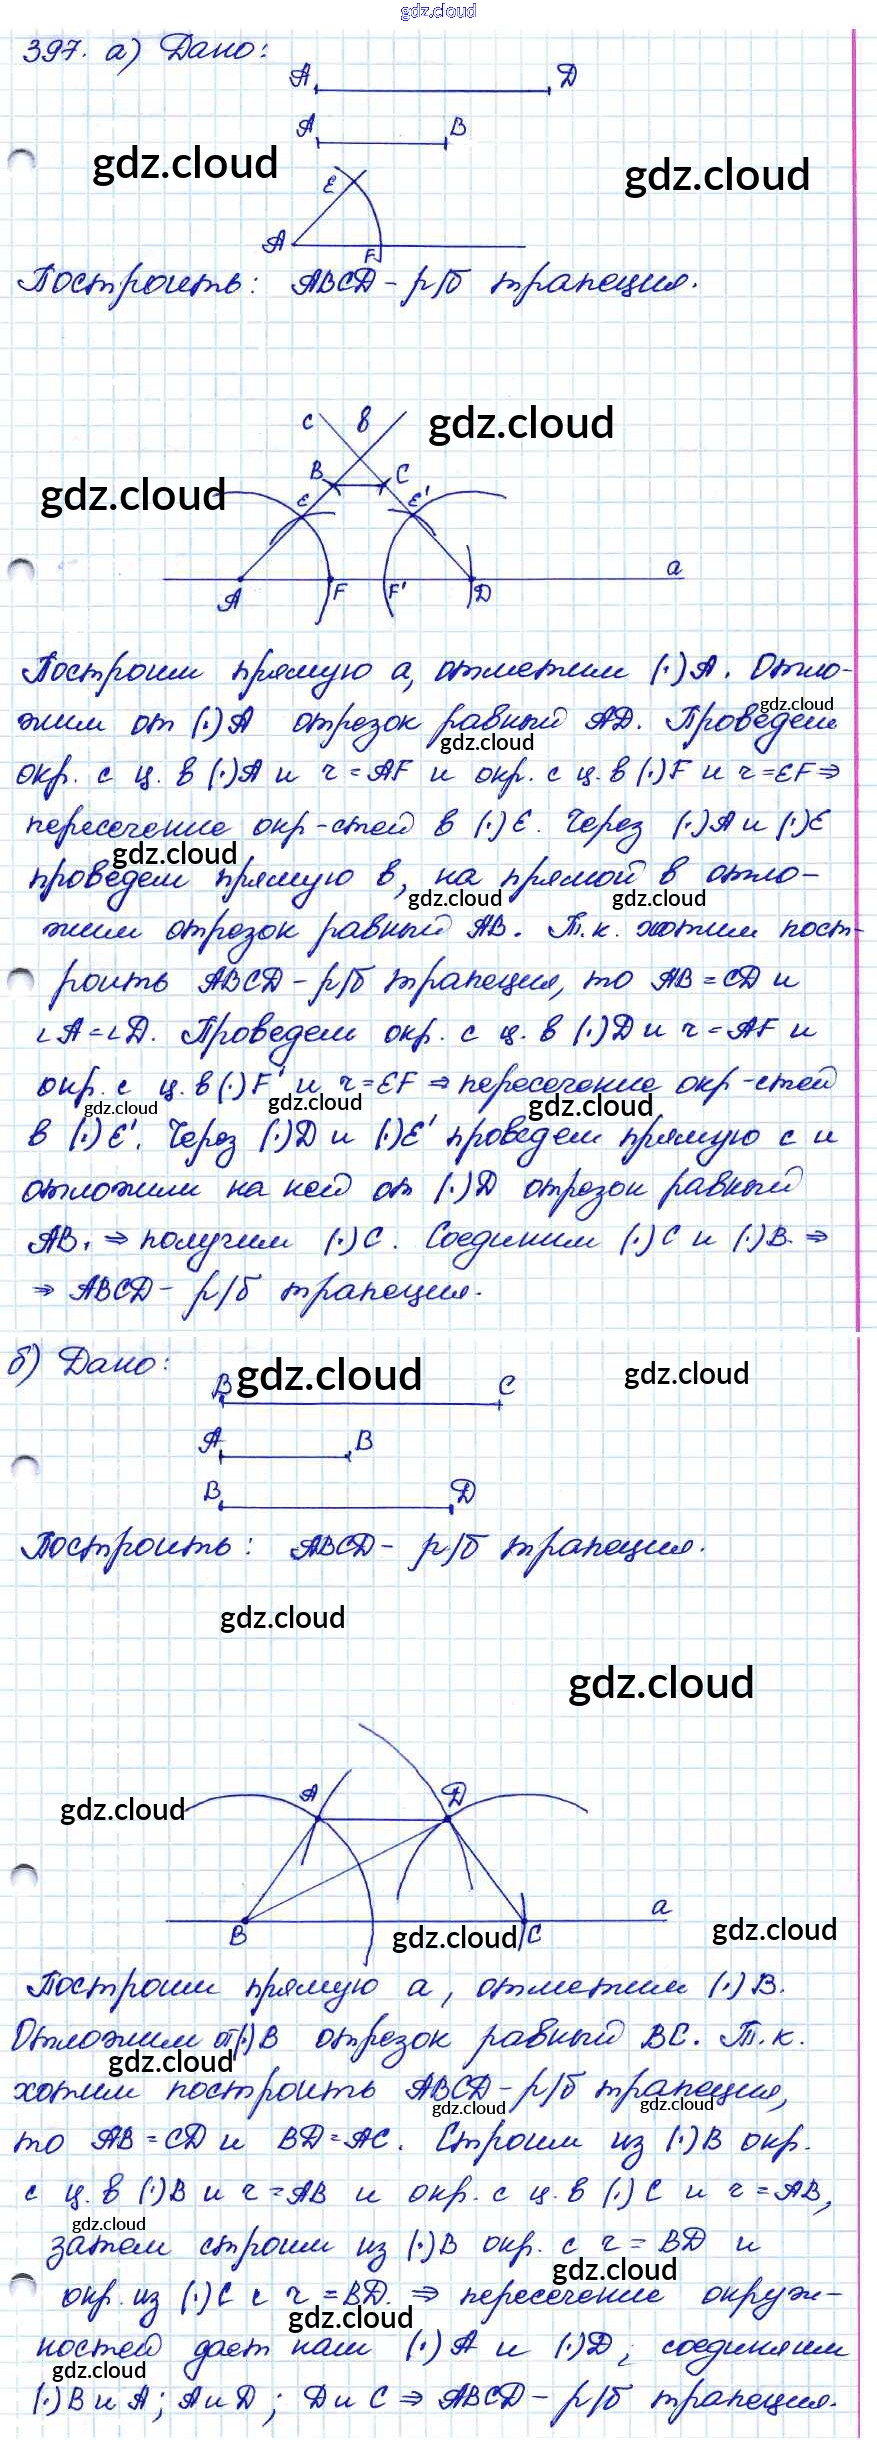 gdz.cloud
397. а) Дано:
A D
A B
gdz.cloud
gdz.cloud
E
A F
Построить: ABCD - р/б трапеция.
c в
gdz.cloud
B C
gdz.cloud
E E'
a
A F F' D
Построим прямую а, отметим (·)A. Отло-
gdz.cloud
жим от (·)A отрезок равный AD. Проведем
gdz.cloud
окр. с ц. в (·)A и r = AF и окр. с ц. в (·)F и r = EF ⇒
пересечение окр-стей в (·)E. Через (·)A и (·)E
gdz.cloud
проведем прямую в, на прямой в отло-
gdz.cloud gdz.cloud
жим отрезок равный AB. Т.к. хотим пост-
роить ABCD - р/б трапеция, то AB = CD и
∠A = ∠D. Проведем окр. с ц. в (·)D и r = AF и
окр. с ц. в (·)F' и r = EF ⇒ пересечение окр-стей
gdz.cloud gdz.cloud gdz.cloud
в (·)E'. Через (·)D и (·)E' проведем прямую с и
отложим на ней от (·)D отрезок равный
AB. ⇒ получим (·)C. Соединим (·)C и (·)B. ⇒
⇒ ABCD - р/б трапеция.
б) Дано:
gdz.cloud
gdz.cloud
B C
A B
B D
Построить: ABCD - р/б трапеция.
gdz.cloud
gdz.cloud
A D
gdz.cloud
a
B C
gdz.cloud
gdz.cloud
Построим прямую а, отметим (·)B.
Отложим от(·)B отрезок равный BC. Т.к.
gdz.cloud
хотим построить ABCD - р/б трапеция,
gdz.cloud gdz.cloud
то AB = CD и BD = AC. Строим из (·)B окр.
с ц. в (·)B и r = AB и окр. с ц. в (·)C и r = AB,
gdz.cloud
затем строим из (·)B окр. с r = BD и
gdz.cloud
окр. из (·)C с r = BD. ⇒ пересечение окруж-
gdz.cloud
ностей дает нам (·)A и (·)D; соединяем
gdz.cloud
(·)B и A; A и D; D и C ⇒ ABCD - р/б трапеция.